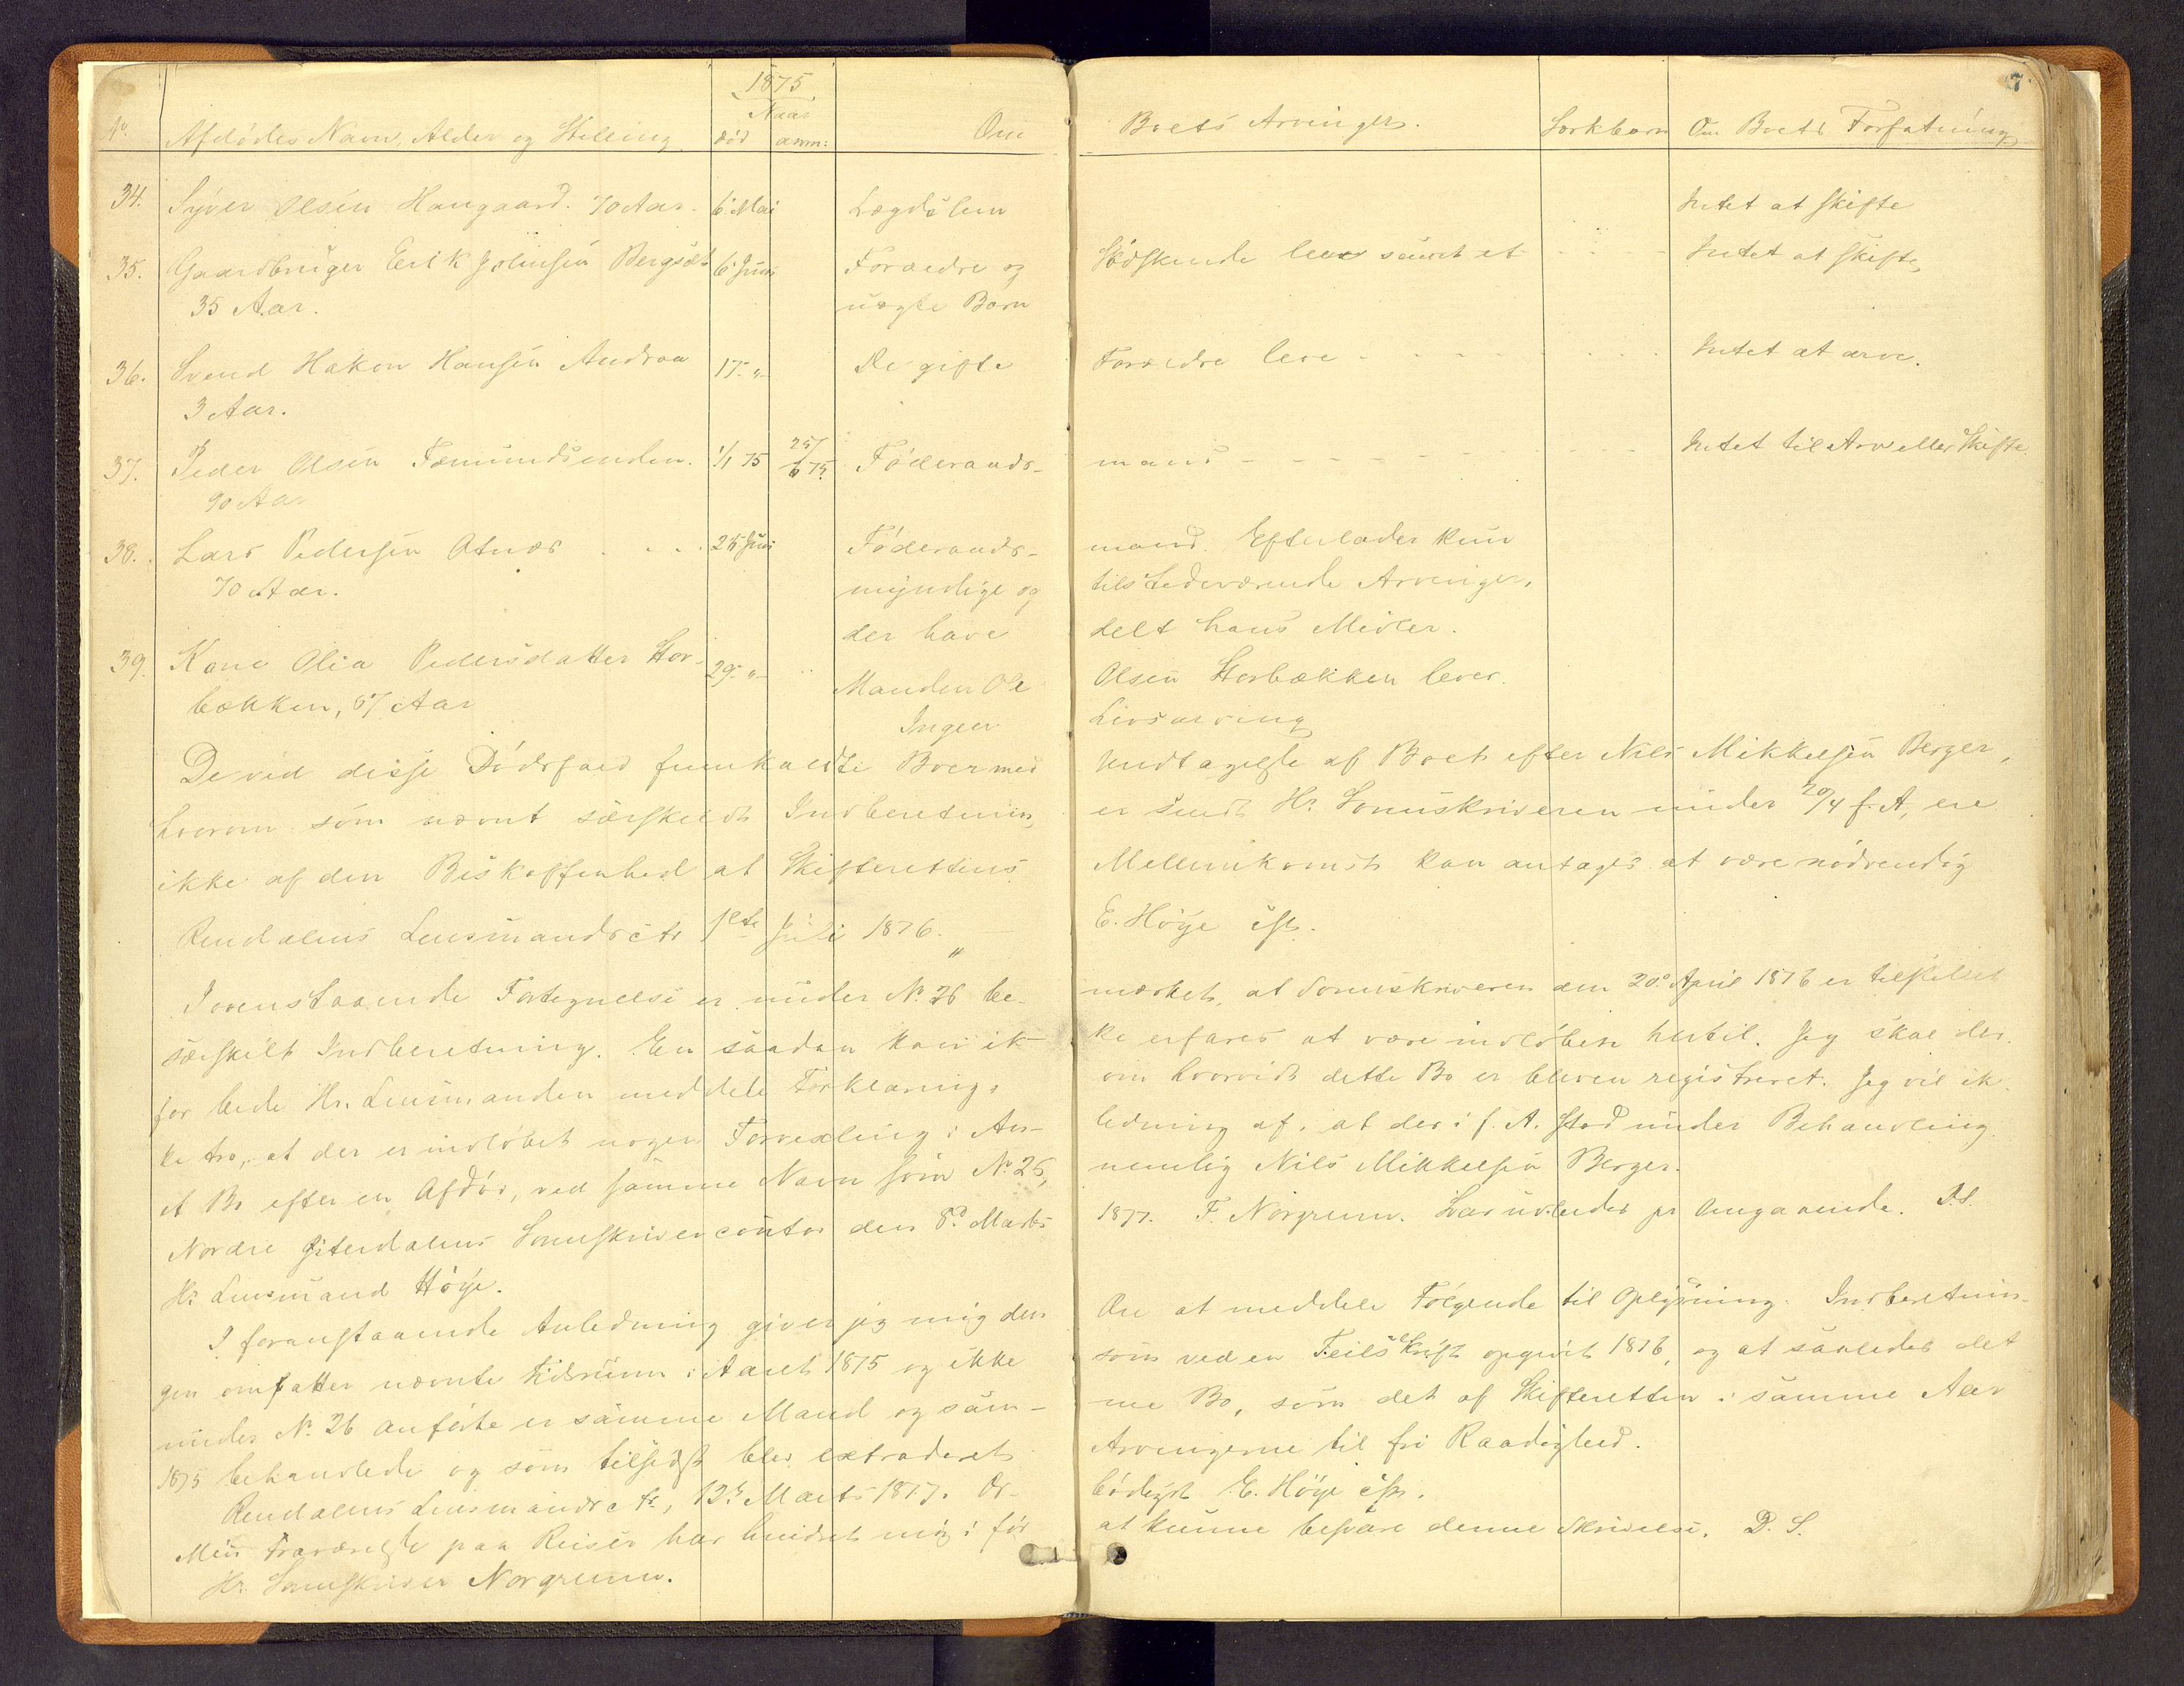 7
1875
Naar
No Afdødes Navn, Alder og Stilling død anm: Om Boets Arvinger. Særkbørn Om Boets Forfatning
34. Syver Olsen Haugaard. 70 Aar. 6 Mai Lægdslem Intet at skifte
35. Gaardbruger Erik Johnsen Bergset 6 Juni Forældre og Sødskende lever samt et Intet at skifte
35 Aar. uægte Barn
36. Svend Hakon Hansen Andraa 17 " De gifte Forældre leve Intet at arve.
3 Aar.
37. Peder Olsen Femundsenden. 1/1 75 25/6 75 Føderaads- mand Intet til Arv eller Skifte
90 Aar
38. Lars Pedersen Atnæs 25 Juni Føderaads- mand. Efterlader kun
70 Aar. myndige og tilstedeværende Arvinger,
der have delt hans Midler.
39. Kone Olia Pedersdatter Stor- 29 " Manden Ole Olsen Storbækken lever.
bækken, 57 Aar Ingen Livsarving
De ved disse Dødsfald fremkaldte Boer med Undtagelse af Boet efter Nils Mikkelsen Berger,
hvorom som nævnt særskildt Indberetning er sendt Hr. Sorenskriveren under 20/4 f. A, ere
ikke af den Beskaffenhed at Skifterettens Mellemkomst kan antages at være nødvendig
Rendalens Lensmandsct 1ste Juli 1876. E. Høye cst.
I ovenstaaende Fortegnelse er under No 26 be- mærket, at Sorenskriveren den 20de April 1876 er tilstillet
særskilt Indberetning. En saadan kan ik- ke erfares at være indløben hertil. Jeg skal der-
for bede Hr. Lensmanden meddele Forklaring, om hvorvidt dette Bo er bleven registreret. Jeg vil ik-
ke tro, at der er indløbet nogen Forvexling i An- ledning af, at der i f. A. stod under Behandling
et Bo efter en Afdød, ved samme Navn som No 26, nemlig Nils Mikkelsen Berger.
Nordre Østerdalens Sorenskrivercontor den 8d Marts 1877. F. Nørgrenn. Svar udbedes pr Omgaaende. D.S.
Hr Lensmand Høye.
I foranstaaende Anledning giver jeg mig den Ære at meddele Følgende til Oplysning. Indberetnin-
gen omfatter nævnte Tidsrum i Aaret 1875 og ikke som ved en Feilskrift opgivit 1876, og at saaledes det
under No 26 anførte er samme Mand og sam- me Bo, som det af Skifteretten i samme Aar
1875 behandlede og som tilsidst blev extraderet Arvingerne til fri Raadighed.
Rendalens Lensmandsct, 12te Marts 1877. Ær- bødigst E. Høye cst.
Min Fraværelse paa Reiser har hindret mig i før at kunne besvare denne Skrivelse. D. S.
Hr. Sorenskriver Norgrenn.